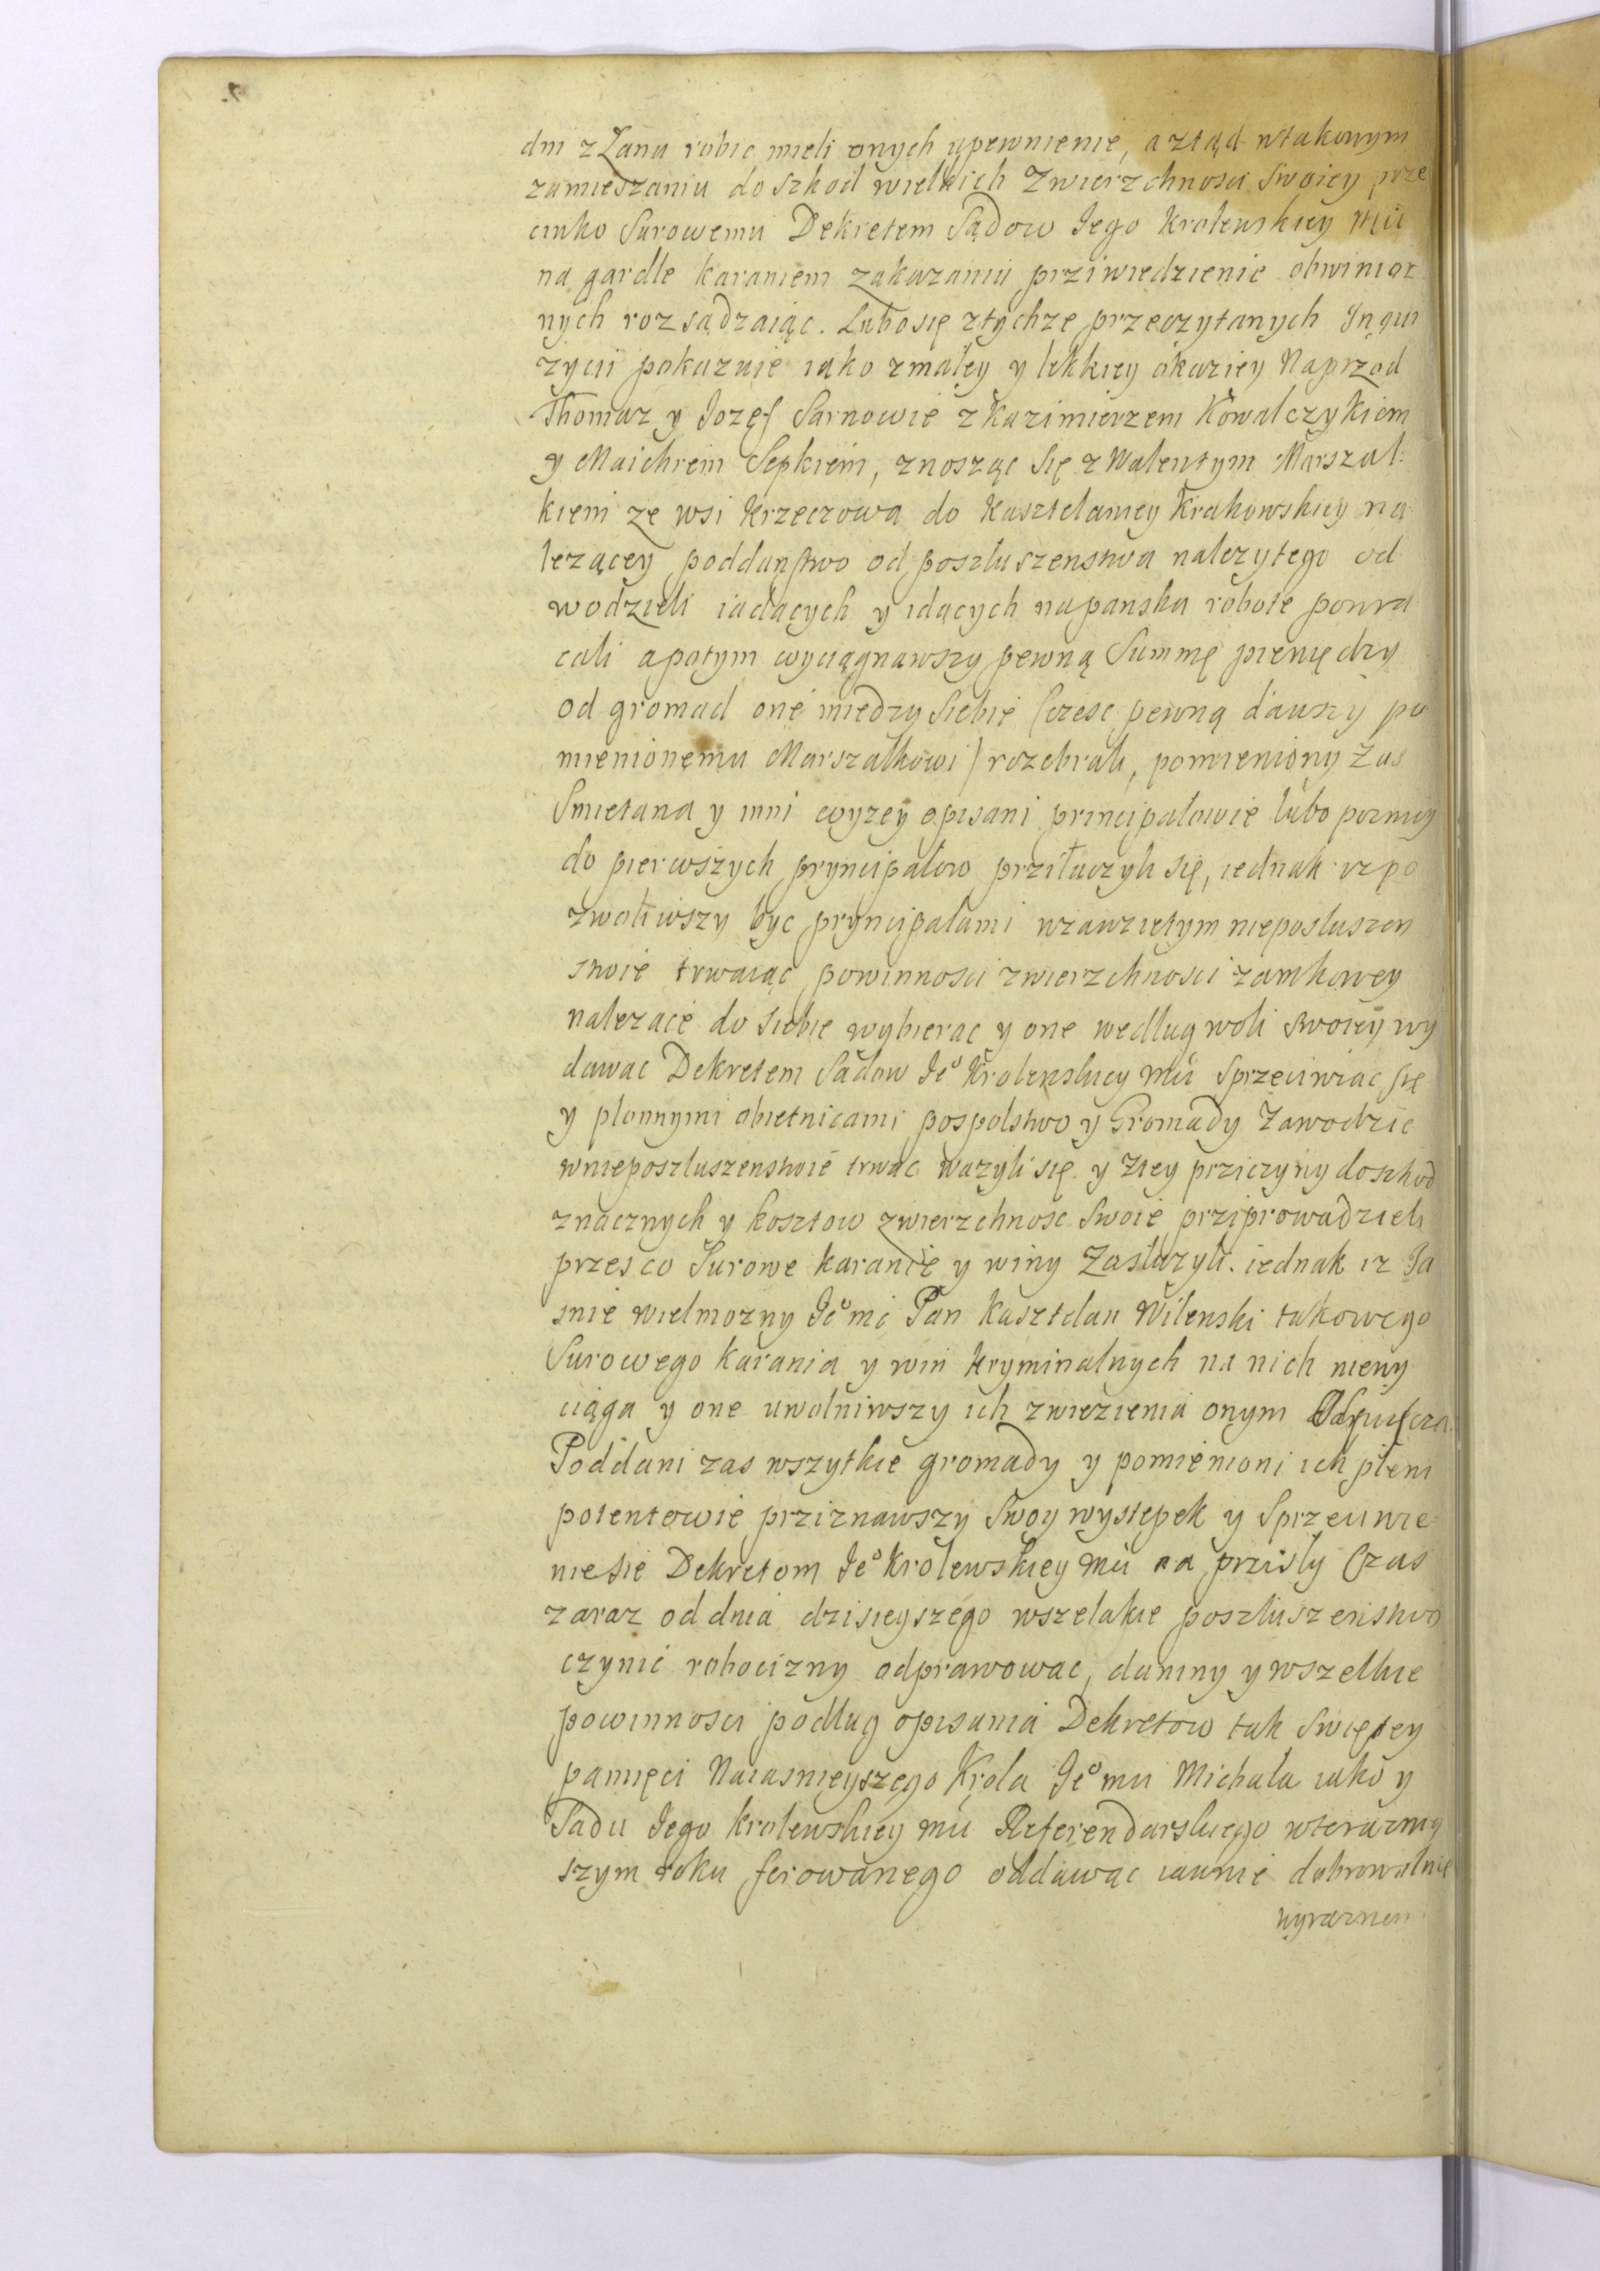 dni z Łana robic mieli onych upewnienie, a ztąd wtakowym
zamieszaniu do szkod wielkich Zwierzchnosci Swoiey prze
ciwko Surowemu Dekretem Sądow Jego Krolewskiey Mci
na gardle karaniem zakazaniu przÿwiedzienie obwinior
nych rozsądzaiąc. Lubo się ztychze przeczytanych Inqui
zycii pokazuie iako zmałey y lekkiey okaziey Naprzod
Thomaz y Jozef Sarnowie z Kazimierzem Kowalczykiem
y Maichrem Sepkiem, znosząc się z Walentym Marszał:
kiem ze wsi Krzeczowa do Kasztelaniey Krakowskiey na
lezącey poddanstwo od poszłuszenstwa nalezytego od
wodzieli iadących y idących napanska robote powra
cali apotym wyciągnawszy pewną Summę pieniędzy
od gromad one między siebie (czesc pewną dawszy po
mienionemu Marszałkowi) rozebrali, pomieniony Zas
Smietana y inni wyzey opisani principałowie lubo pozniey
do pierwszych pryncipałow prziłaczyli się, iednak ze po
zwoliwszy byc pryncipałami wzawzietym nieposłuszen
stwie trwaiąc powinnosci zwierzchnosci zamkowey
nalezace do siebie wybierac y one według woli swoiey wy
dawac Dekretem Sadow Jeº Krolewskiey Mci Sprzeciwiac się
y płonnymi obietnicami pospolstwo y Gromady Zawodzic
wnieposzłuszenstwie trwac wazyli się y ztey prziczyny doszkod
znacznych y kosztow zwierzchnosc Swoie prziprowadzieli
przesco Surowe karanie y winy Zasłuzyli. iednak iz Ja
snie wielmozny Jeºmc Pan Kasztelan Wilenski takowego
Surowego karania y win kryminalnych na nich niewy
ciąga y one uwolniwszy ich zwiezienia onym Odpuszcza.
Poddani zas wszytkie gromady y pomienioni ich pleni
potentowie prziznawszy Swoy wystepek y Sprzeciwie
niesie Dekretom Jeº Krolewskiey Mci na prziszły Czas
zaraz od dnia dzisieyszego wszelakie poszłuszenstwo
czynic robocizny odprawowac, daniny y wszelkie
powinnosci podług opisania Dekretow tak Swiętey
pamięci Naiasnieyszego Krola Jeºmci Michała iako y
Sadu Jego krolewskiey Mci Referendarskiego wterazniey
szym roku ferowanego oddawac iawnie dobrowolnie
wyraznem